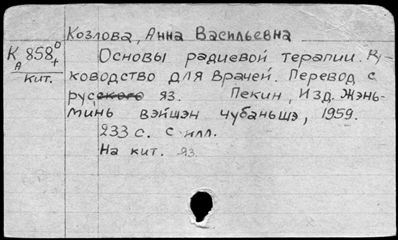 Козлова, Анна Васильевна
К 858 0/4
А
кит.
Основы радиевой терапии. Ру-
ководство для врачей. Перевод с
русского яз. Пекин, Изд. Жэнь-
минь вэйшэн чубаньшэ, 1959.
233 с. с илл.
На кит. яз.